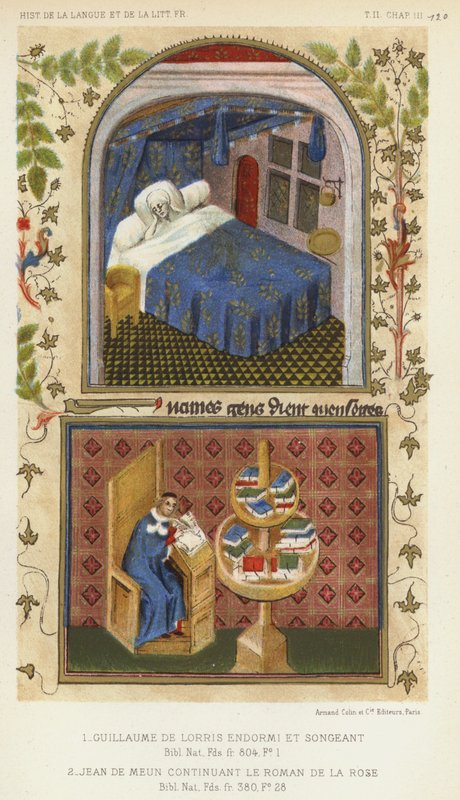 HIST. DE LA LANGUE ET DE LA LITT. FR. T. II. CHAP. III 120
names gens dient quen songes
Armand Colin et Cie Editeurs, Paris.
1_GUILLAUME DE LORRIS ENDORMI ET SONGEANT
Bibl. Nat., Fds. fr. 804, Fº 1
2_JEAN DE MEUN CONTINUANT LE ROMAN DE LA ROSE
Bibl. Nat., Fds. fr. 380, Fº 28